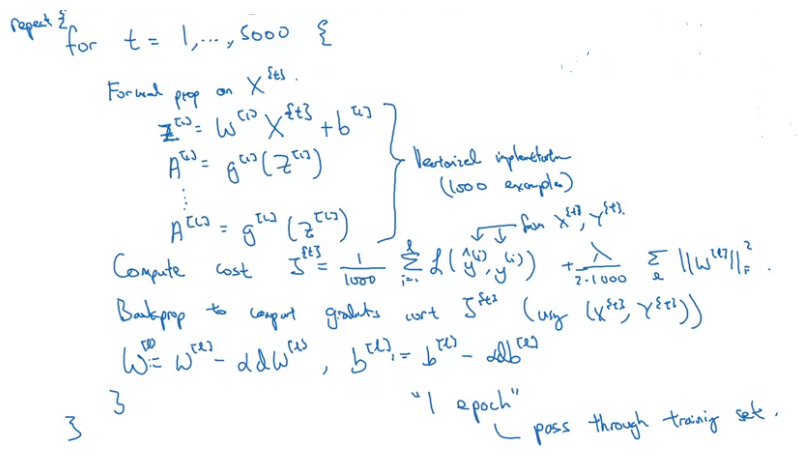 repeat {
for t = 1, ..., 5000 {
Forward prop on X^{t}.
Z^[1] = W^[1] X^{t} + b^[1]
A^[1] = g^[1](Z^[1])
⋮
A^[L] = g^[L](Z^[L])
Vectorized implementation
(1000 examples)
from X^{t}, Y^{t}.
Compute cost J^{t} = 1/1000 Σ_{i=1}^{l} L(ŷ^(i), y^(i)) + λ/(2·1000) Σ_l ||W^[l]||_F^2.
Backprop to comput gradients wrt J^{t} (using (X^{t}, Y^{t}))
W^[l] := W^[l] - αdW^[l], b^[l] := b^[l] - αdb^[l]
}
}
"1 epoch"
pass through training set.